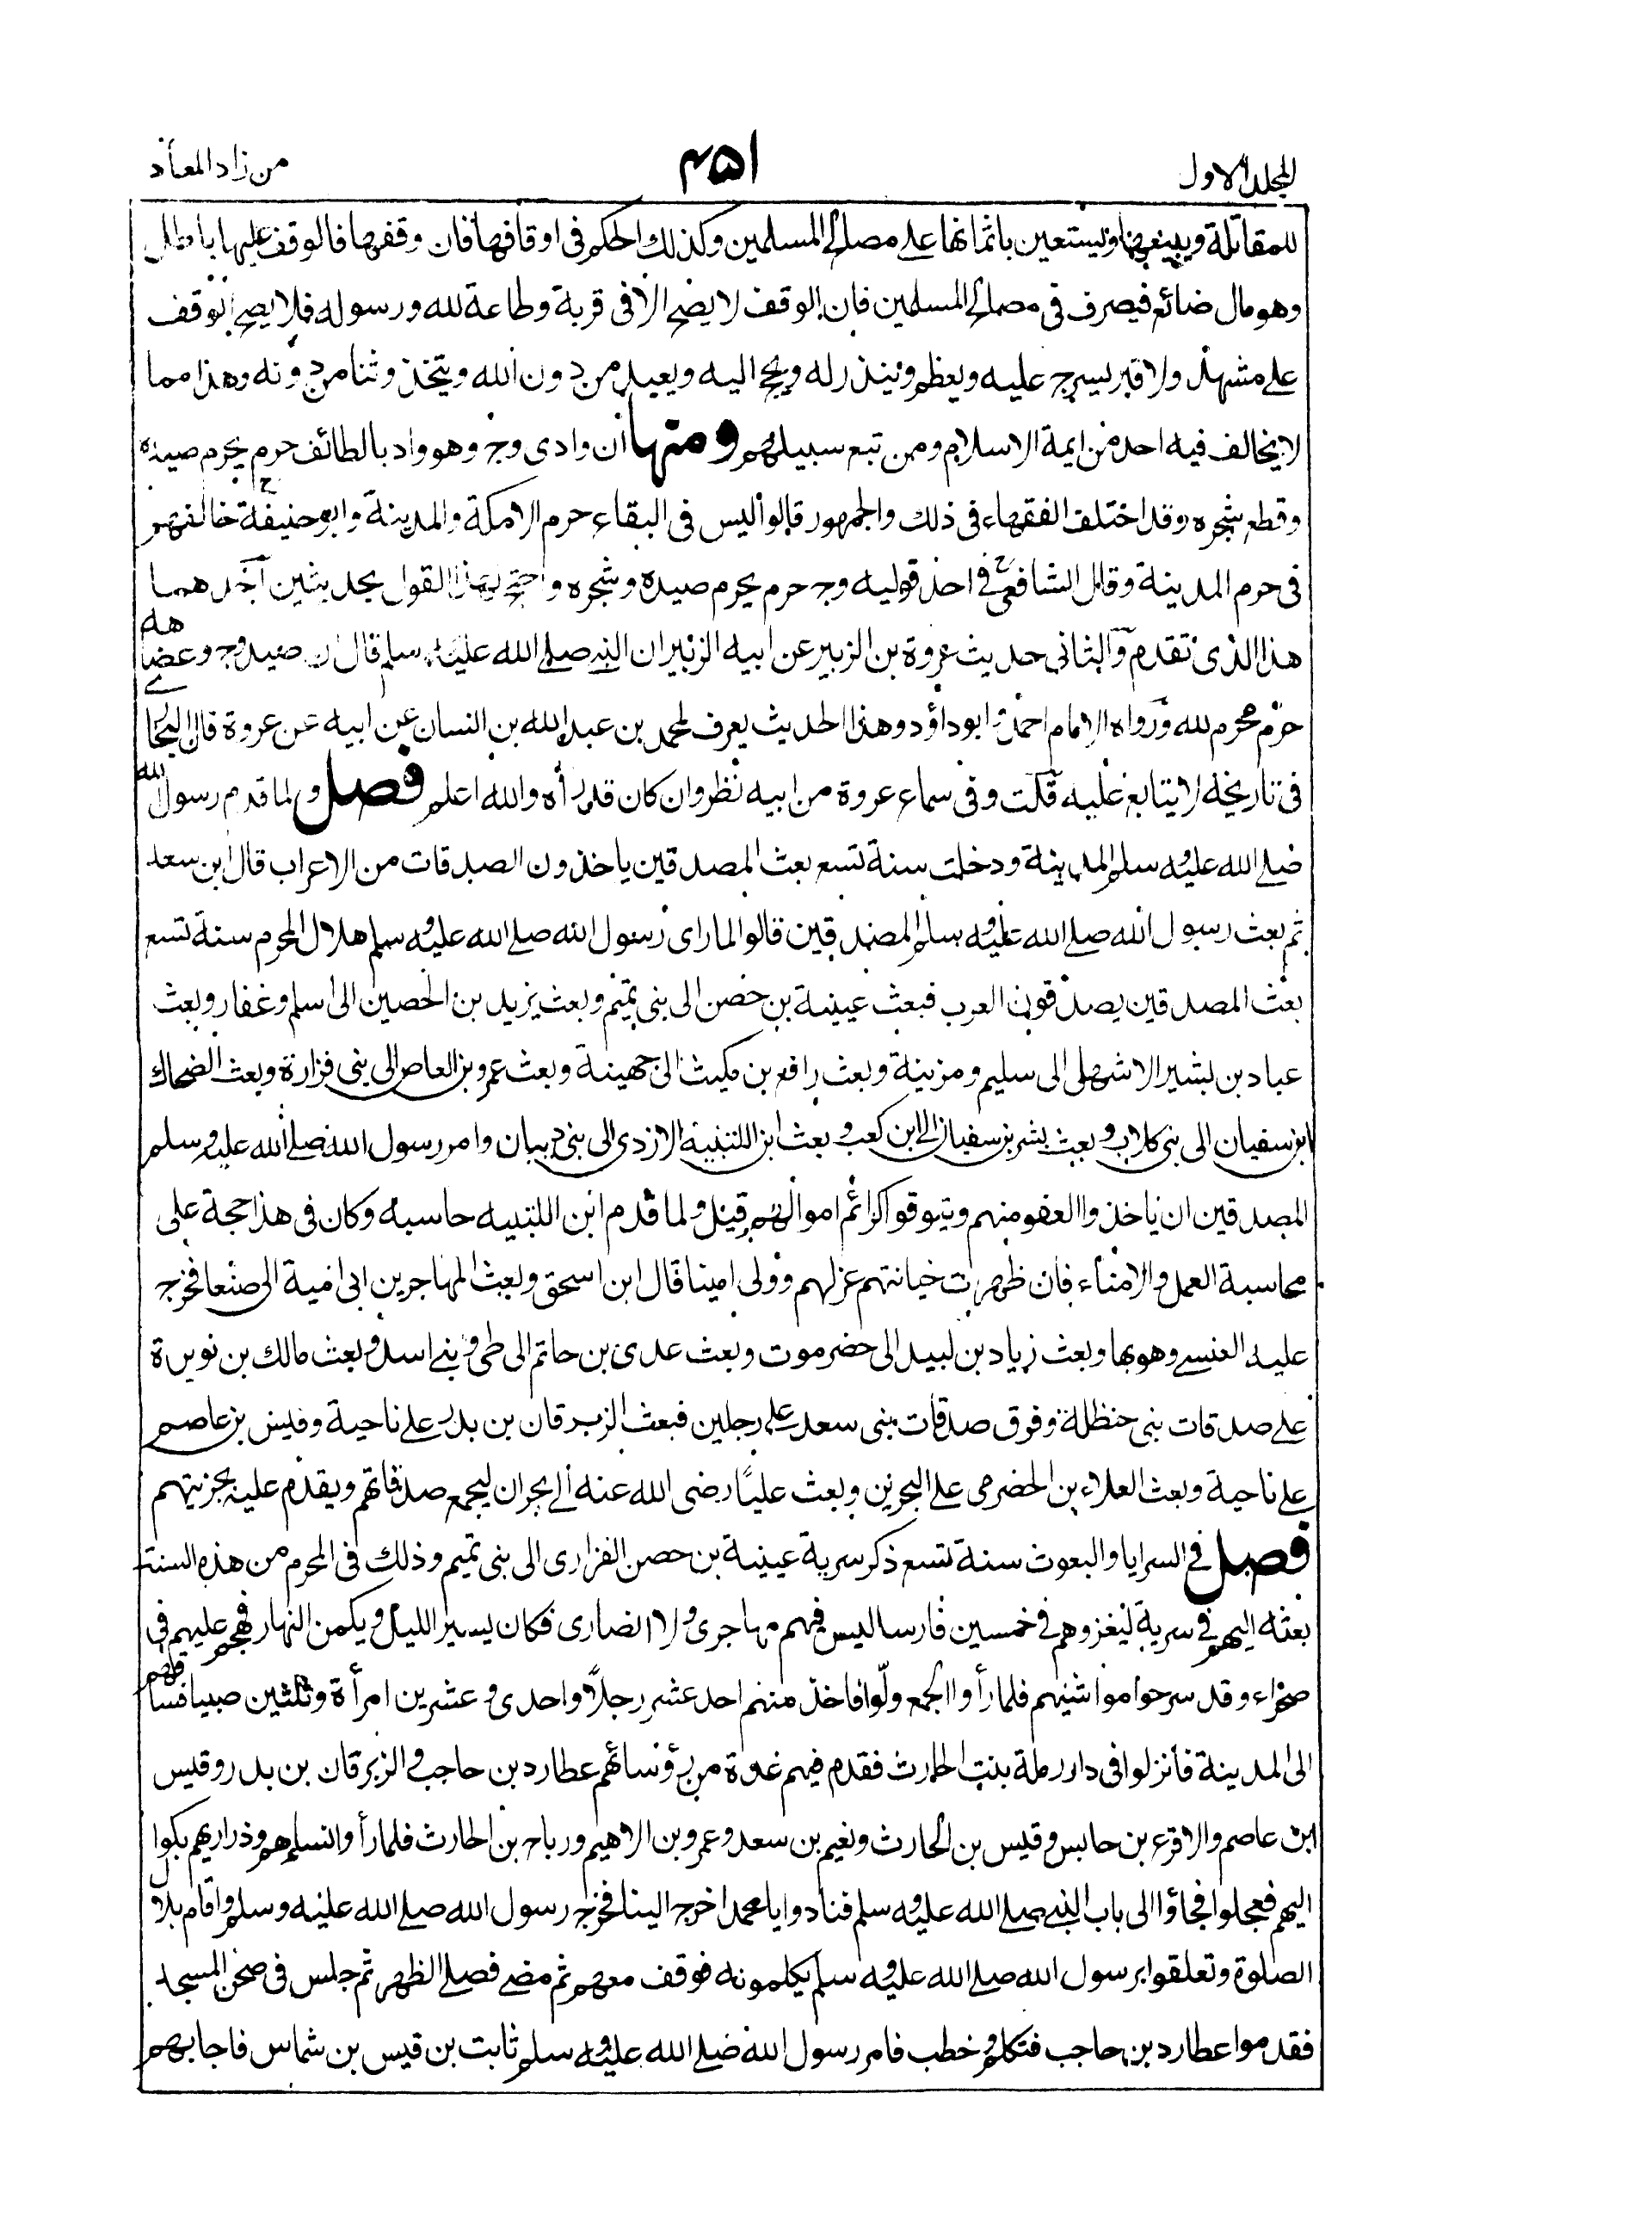 المجلد الاول
۴۵۱
من زاد المعاد
للمقاتلة ويبيعها ويستعين باثمانها على مصالح المسلمين وكذلك الحكم فى اوقافها فان وقفها فالوقف عليها باطل
وهو مال ضائع فيصرف فى مصالح المسلمين فان الوقف لا يصح الا فى قربة وطاعة لله ورسوله فلا يصح الوقف
على مشهد ولا قبر يسرج عليه ويعظم وينذر له ويحج اليه ويعبد من دون الله ويتخذ وثنا من دونه وهذا مما
لا يخالف فيه احد من ايمة الاسلام ومن تبع سبيلهم ومنها ان وادى وج وهو واد بالطائف حرم يحرم صيده
وقطع شجره وقد اختلف الفقهاء فى ذلك والجمهور قالوا ليس فى البقاع حرم الا مكة والمدينة وابو حنيفة خالفهم
فى حرم المدينة وقال الشافعى فى احد قوليه وج حرم يحرم صيده وشجره واحتج لهذا القول بحديثين احدهما
هذا الذى تقدم والثانى حديث عروة بن الزبير عن ابيه الزبير ان النبى صلى الله عليه وسلم قال ان صيد وج وعضاهه
حرم محرم لله ورواه الامام احمد وابو داؤد وهذا الحديث يعرف لمحمد بن عبد الله بن انسان عن ابيه عن عروة قال البخارى
فى تاريخه لا يتابع عليه قلت وفى سماع عروة من ابيه نظر وان كان قد رأه والله اعلم فصل ولما قدم رسول الله
صلى الله عليه وسلم المدينة ودخلت سنة تسع بعث المصدقين ياخذون الصدقات من الاعراب قال ابن سعد
ثم بعث رسول الله صلى الله عليه وسلم المصدقين قالوا لما راى رسول الله صلى الله عليه وسلم هلال المحرم سنة تسع
بعث المصدقين يصدقون العرب فبعث عيينة بن حصن الى بنى تميم وبعث يزيد بن الحصين الى اسلم وغفار وبعث
عباد بن بشير الاشهلى الى سليم ومزينة وبعث رافع بن مكيث الى جهينة وبعث عمرو بن العاص الى بنى فزارة وبعث الضحاك
ابن سفيان الى بنى كلاب وبعث بشر بن سفيان الى ابن كعب وبعث ابن اللتبية الازدى الى بنى دبيان وامر رسول الله صلى الله عليه وسلم
المصدقين ان ياخذوا العفو منهم ويتوقوا كرائم اموالهم قيل ولما قدم ابن اللتبيه حاسبه وكان فى هذا حجة على
محاسبة العمل والامناء فان ظهرت خيانتهم عزلهم وولى امينا قال ابن اسحق وبعث المهاجر بن ابى امية الى صنعا فخرج
عليه العنسى وهو بها وبعث زياد بن لبيد الى حضرموت وبعث عدى بن حاتم الى طى وبنى اسد وبعث مالك بن نويرة
على صدقات بنى حنظلة وفرق صدقات بنى سعد على رجلين فبعث الزبرقان بن بدر على ناحية وقيس بن عاصم
على ناحية وبعث العلاء بن الحضرمى على البحرين وبعث عليًا رضى الله عنه الى نجران ليجمع صدقاتهم ويقدم عليه بجزيتهم
فصل فى السرايا والبعوث سنة تسع ذكر سرية عيينة بن حصن الفزارى الى بنى تميم وذلك فى المحرم من هذه السنة
بعثه اليهم فى سرية ليغزوهم فى خمسين فارسا ليس فيهم مهاجرى ولا انصارى فكان يسير الليل ويكمن النهار فهجم عليهم فى
صحراء وقد سرحوا مواشيهم فلما رأوا الجمع ولّوا فاخذ منهم احد عشر رجلًا واحدى وعشرين امرأة وثلثين صبيا فساقهم
الى المدينة فانزلوا فى دار رملة بنت الحارث فقدم فيهم عدة من رؤسائهم عطارد بن حاجب والزبرقان بن بدر وقيس
ابن عاصم والاقرع بن حابس وقيس بن الحارث ونعيم بن سعد وعمرو بن الاهيم ورباح بن الحارث فلما رأوا نساءهم وذراريهم بكوا
اليهم فعجلوا فجاؤا الى باب النبى صلى الله عليه وسلم فنادوا يا محمد اخرج الينا فخرج رسول الله صلى الله عليه وسلم واقام بلال
الصلوة وتعلقوا برسول الله صلى الله عليه وسلم يكلمونه فوقف معهم ثم مضى فصلى الظهر ثم جلس فى صحن المسجد
فقدموا عطارد بن حاجب فتكلم وخطب فامر رسول الله صلى الله عليه وسلم ثابت بن قيس بن شماس فاجابهم